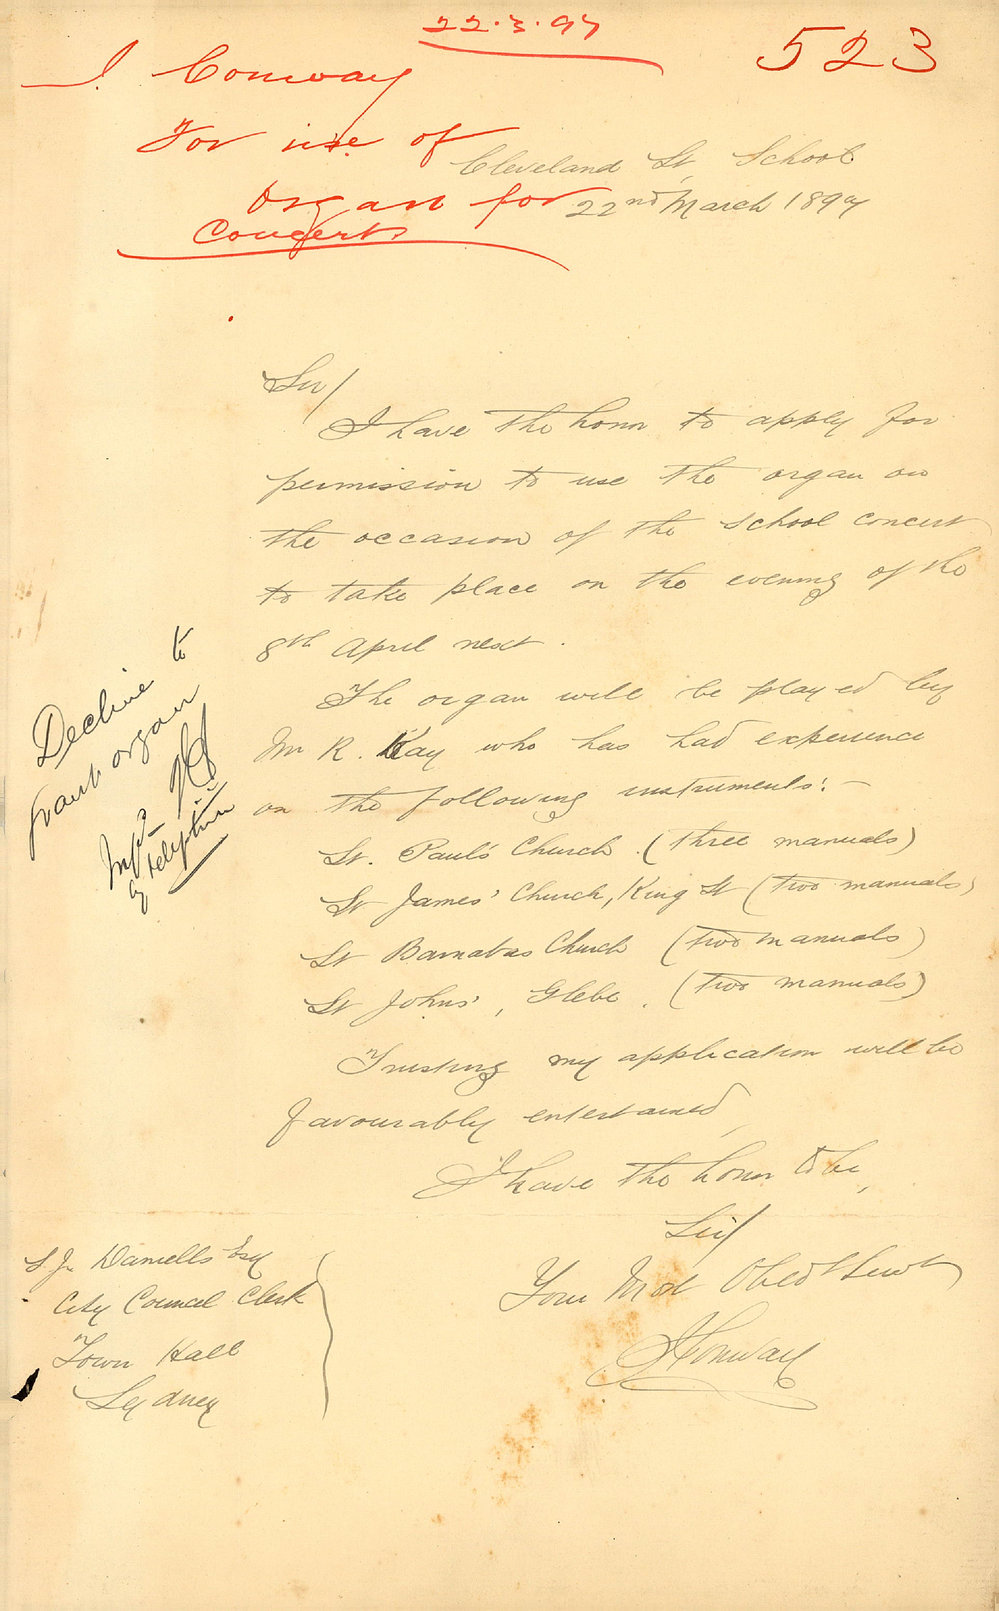 22.3.97
523
J. Conway
For use of
Organ for
Concerts
Cleveland St. School
22nd March 1897
Sir/
I have the honor to apply for
permission to use the organ on
the occasion of the School concert
to take place on the evening of the
8th April next.
The organ will be played by
Mr R. Kay who has had experience
on the following instruments:—
St. Paul's Church. (three manuals)
St James' Church, King St (two manuals)
St Barnabas Church (two manuals)
St Johns', Glebe. (two manuals)
Trusting my application will be
favourably entertained,
I have the honor to be,
Sir/
Your Most Obedt Servt
J Conway
Decline to
grant organ
by telephone
S Jn Daniells Esq
City Council Clerk
Town Hall
Sydney